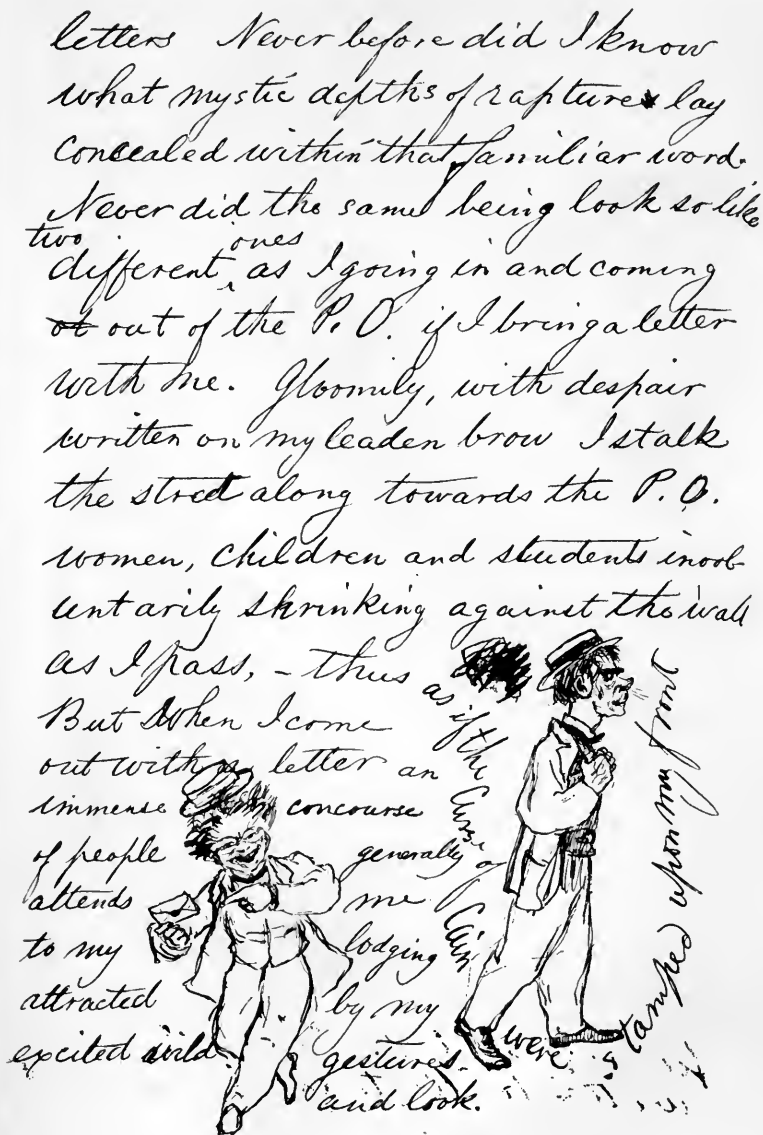 letters Never before did I know
what mystic depths of rapture lay
concealed within that familiar word.
Never did the same being look so like
two different ones as I going in and coming
out of the P. O. if I bring a letter
with me. Gloomily, with despair
written on my leaden brow I stalk
the street along towards the P. O.
women, children and students invol-
untarily shrinking against the wall
as I pass, - thus
as if the curse of Cain were stamped upon my front
But When I come
out with a letter an
immense concourse
of people generally
attends me
to my lodging
attracted by my
excited wild gestures
and look.